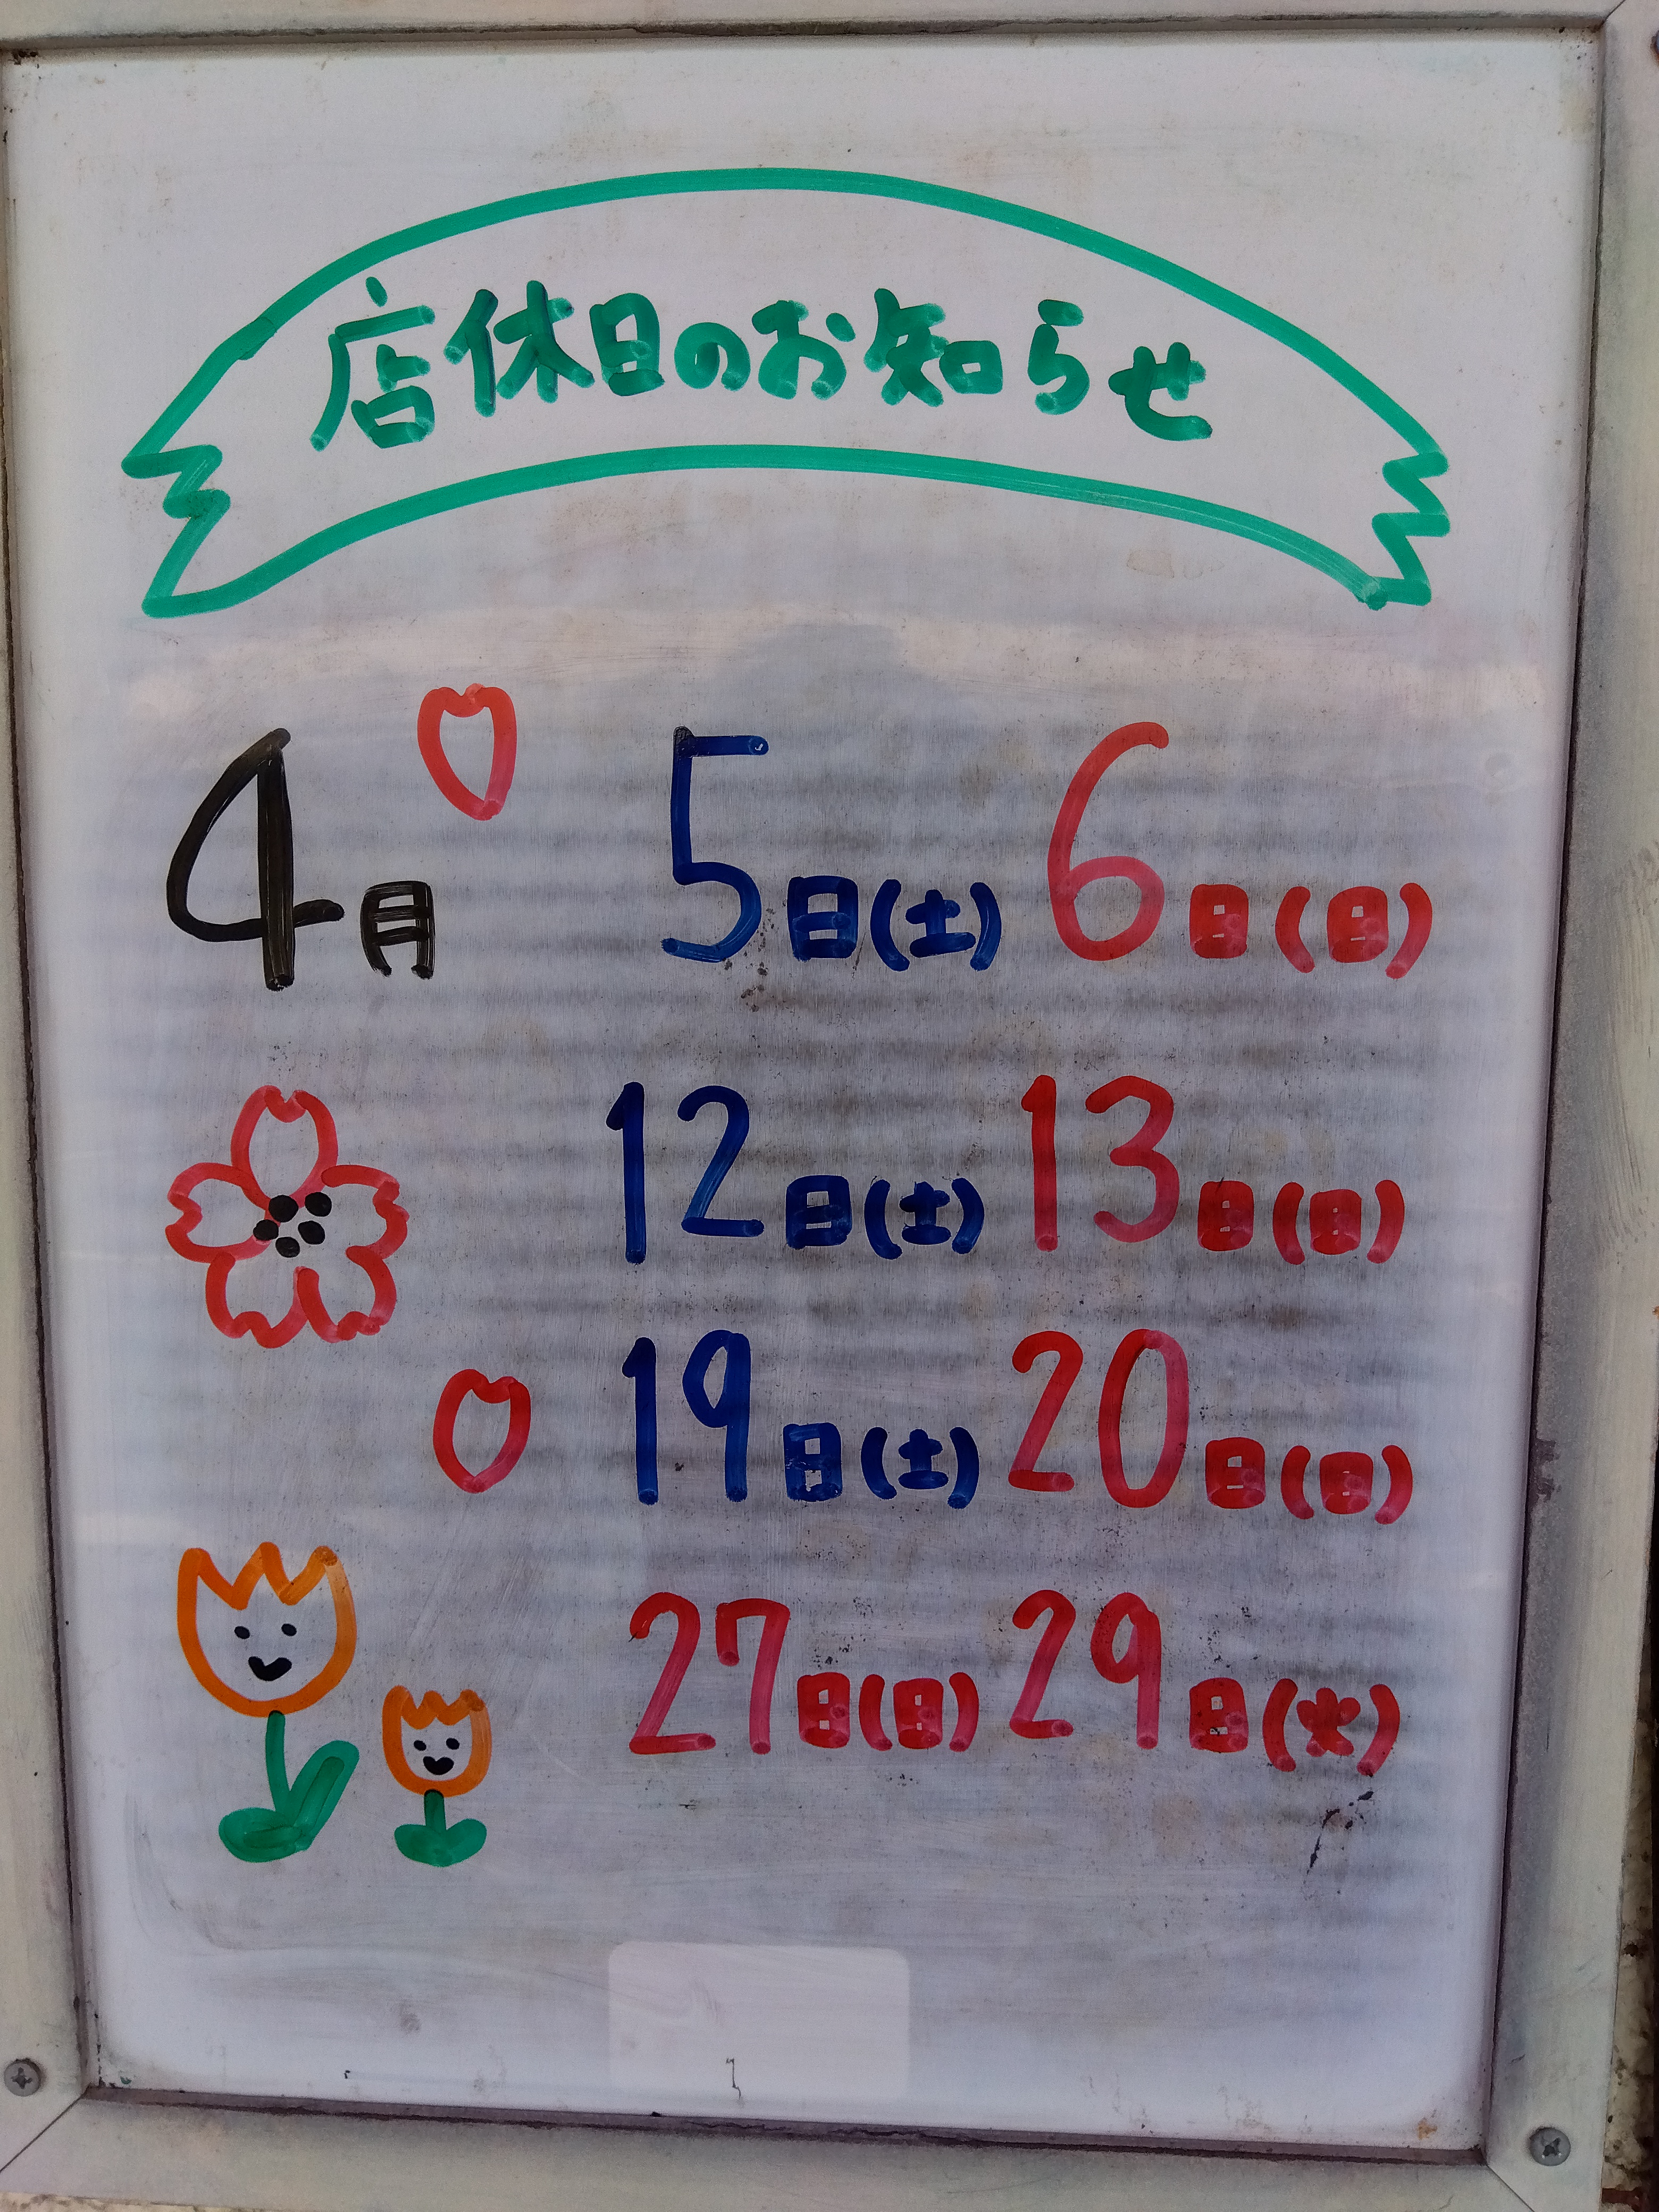 店休日のお知らせ
4月 5日(土) 6日(日)
12日(土) 13日(日)
19日(土) 20日(日)
27日(日) 29日(火)